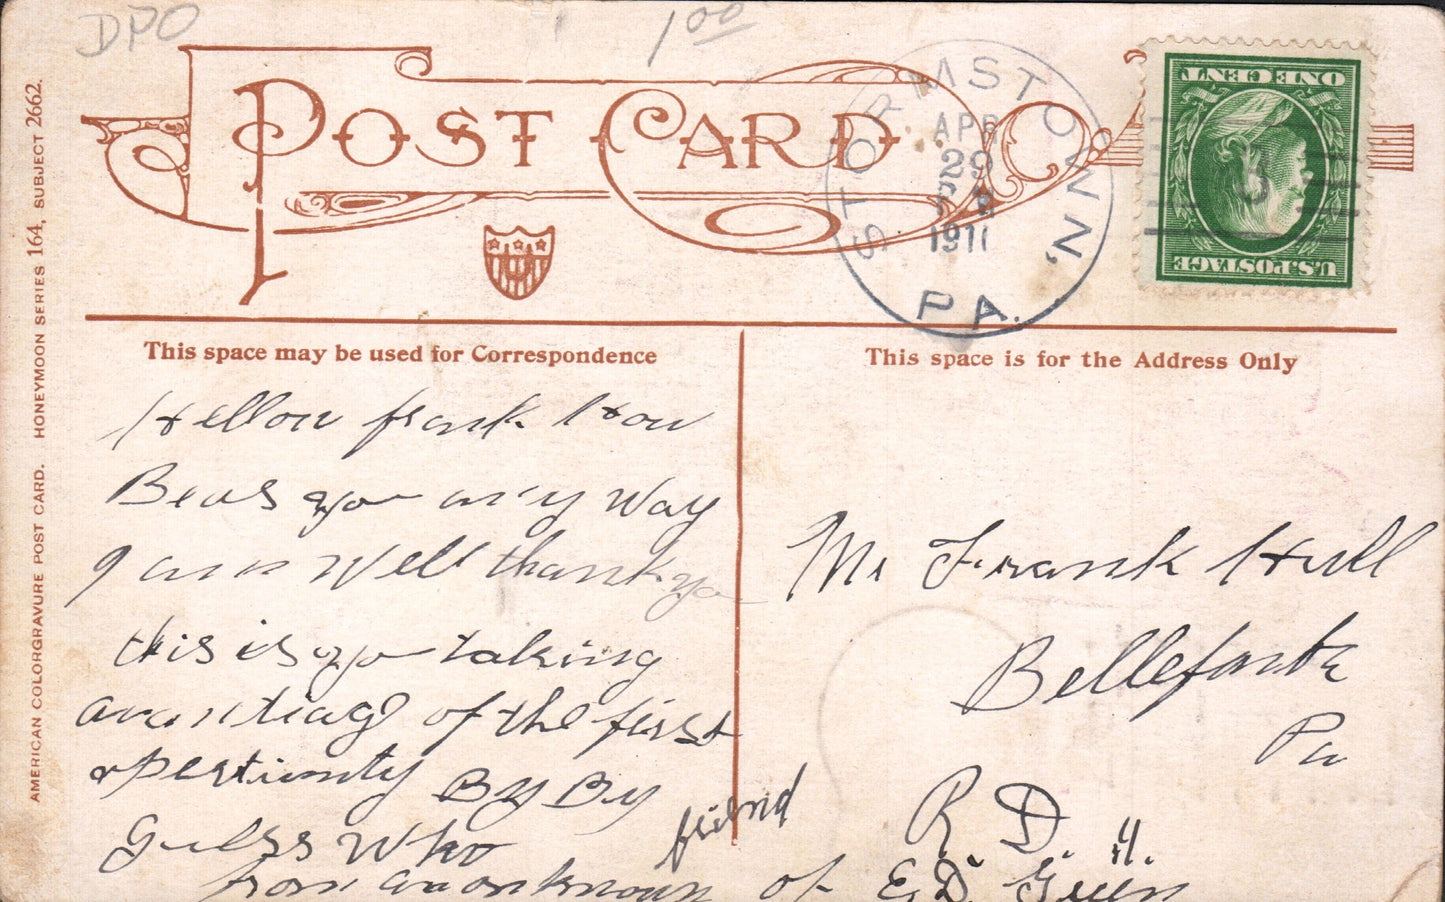 DPO
1.00
POST CARD
STORMSTOWN, PA.
APR
29
1911
ONE CENT
U.S. POSTAGE
3
AMERICAN COLORGRAVURE POST CARD. HONEYMOON SERIES 164, SUBJECT 2662.
This space may be used for Correspondence
This space is for the Address Only
Hellow frank How
Beas you any Way
I am Well thank you
this is you taking
avantiage of the first
opertunity By By
Guess Who
from an onknown friend of E.D. Green
Mr Frank Hull
Bellefonte
Pa
R. D.